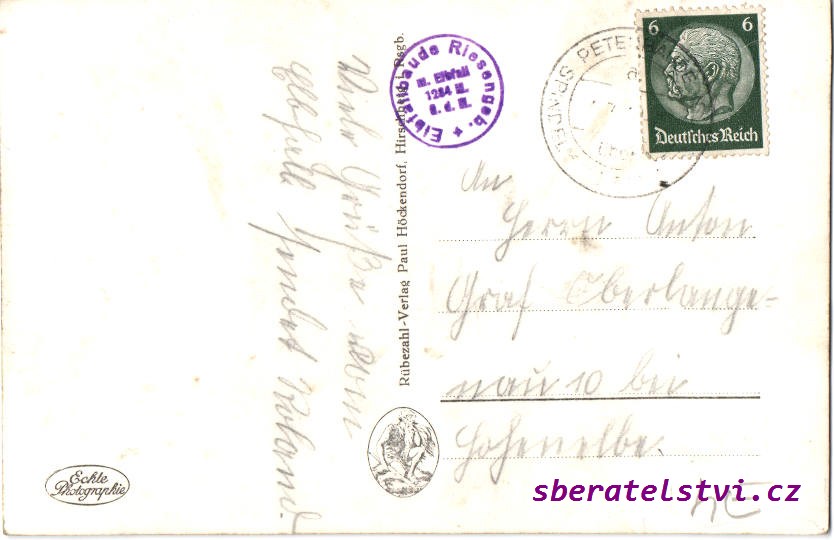 Viele Grüße vom
Elbfall sendet Roland.
Elbfallbaude Riesengeb. +
m. Elbfall
1284 M.
ü. d. M.
Rübezahl-Verlag Paul Höckendorf, Hirschberg i. Rsgb.
6 6
Deutsches Reich
An
Herrn Anton
Graf Oberlange-
nau 10 bei
Hohenelbe.
Echte
Photographie
sberatelstvi.cz